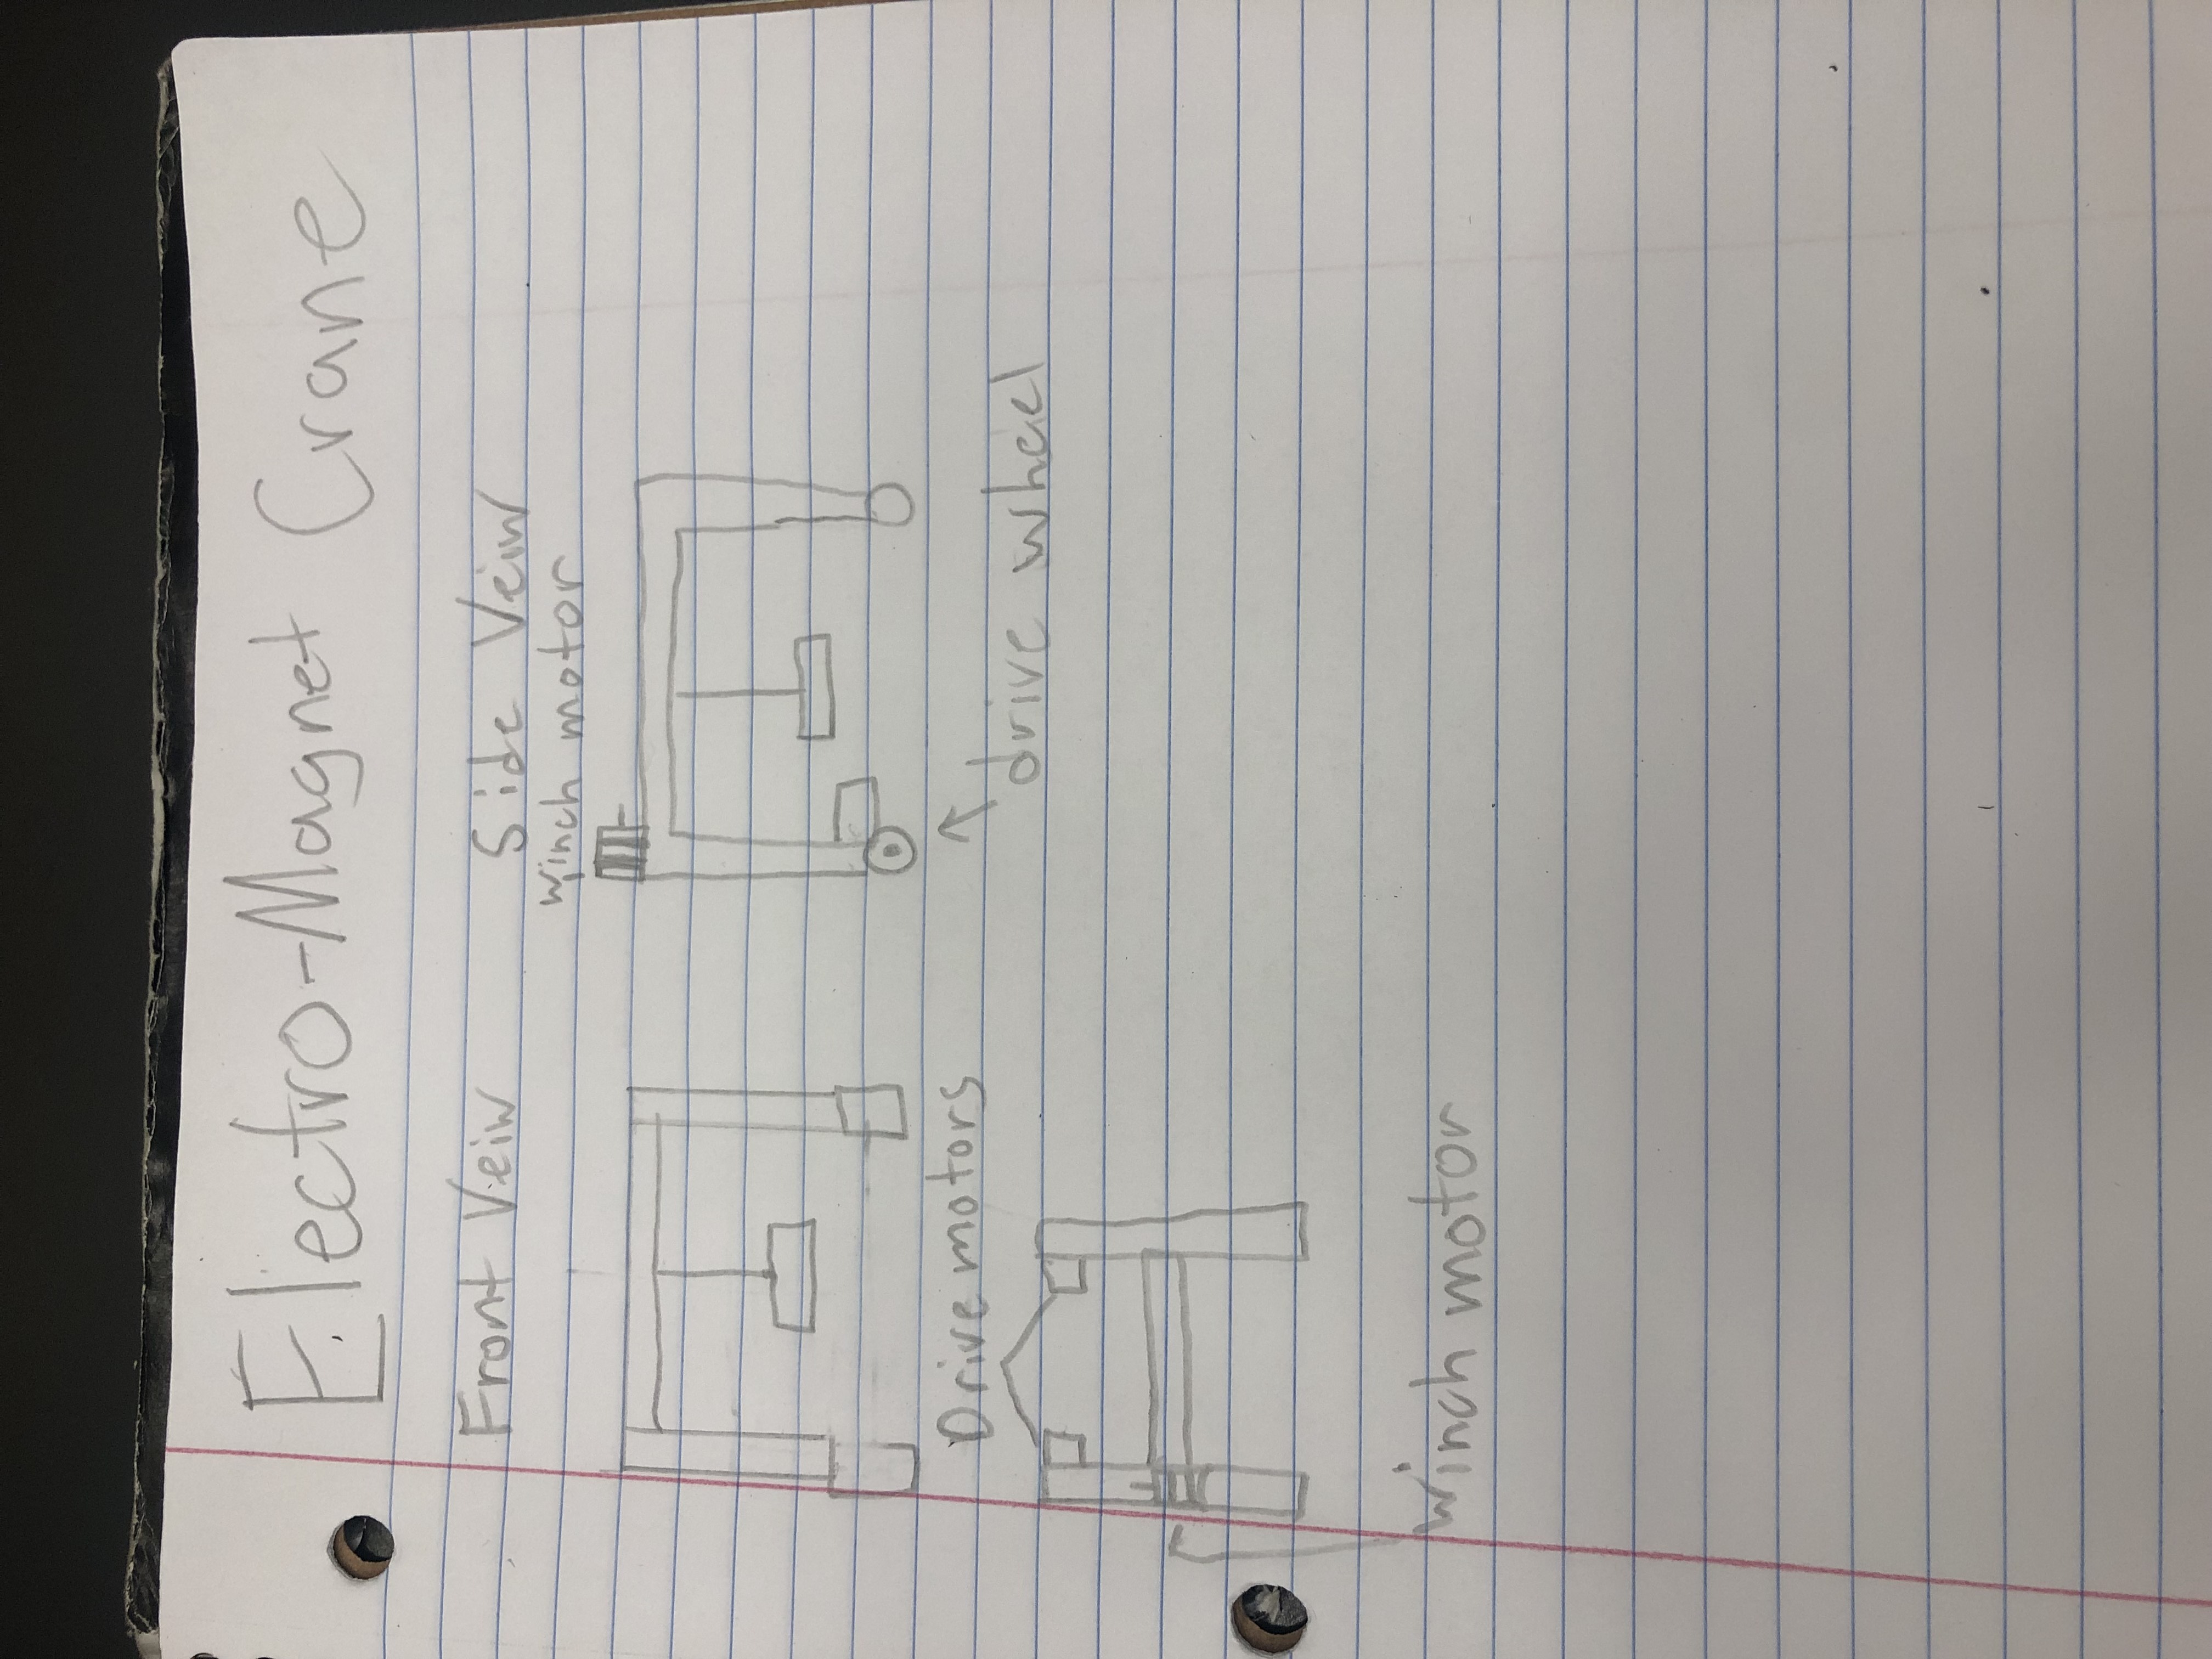 Electro-Magnet Crane
Front Veiw
Side Veiw
winch motor
Drive motors
drive wheel
Winch motor